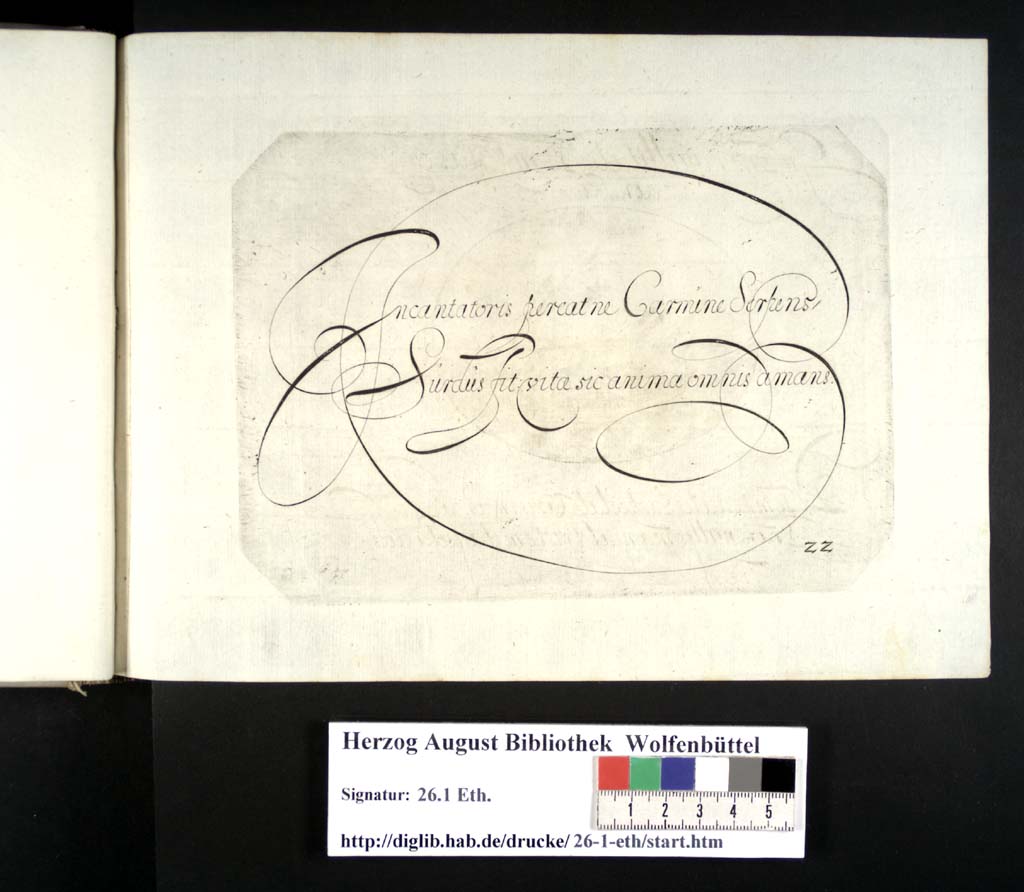 Incantatoris pereat ne Carmine Serpens,
Surdus fit, vitæ sic anima omnis amans.
22
Herzog August Bibliothek Wolfenbüttel
Signatur: 26.1 Eth.
1 2 3 4 5
http://diglib.hab.de/drucke/ 26-1-eth/start.htm